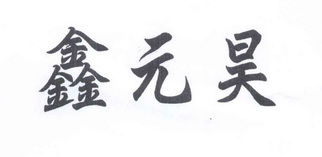 鑫元昊